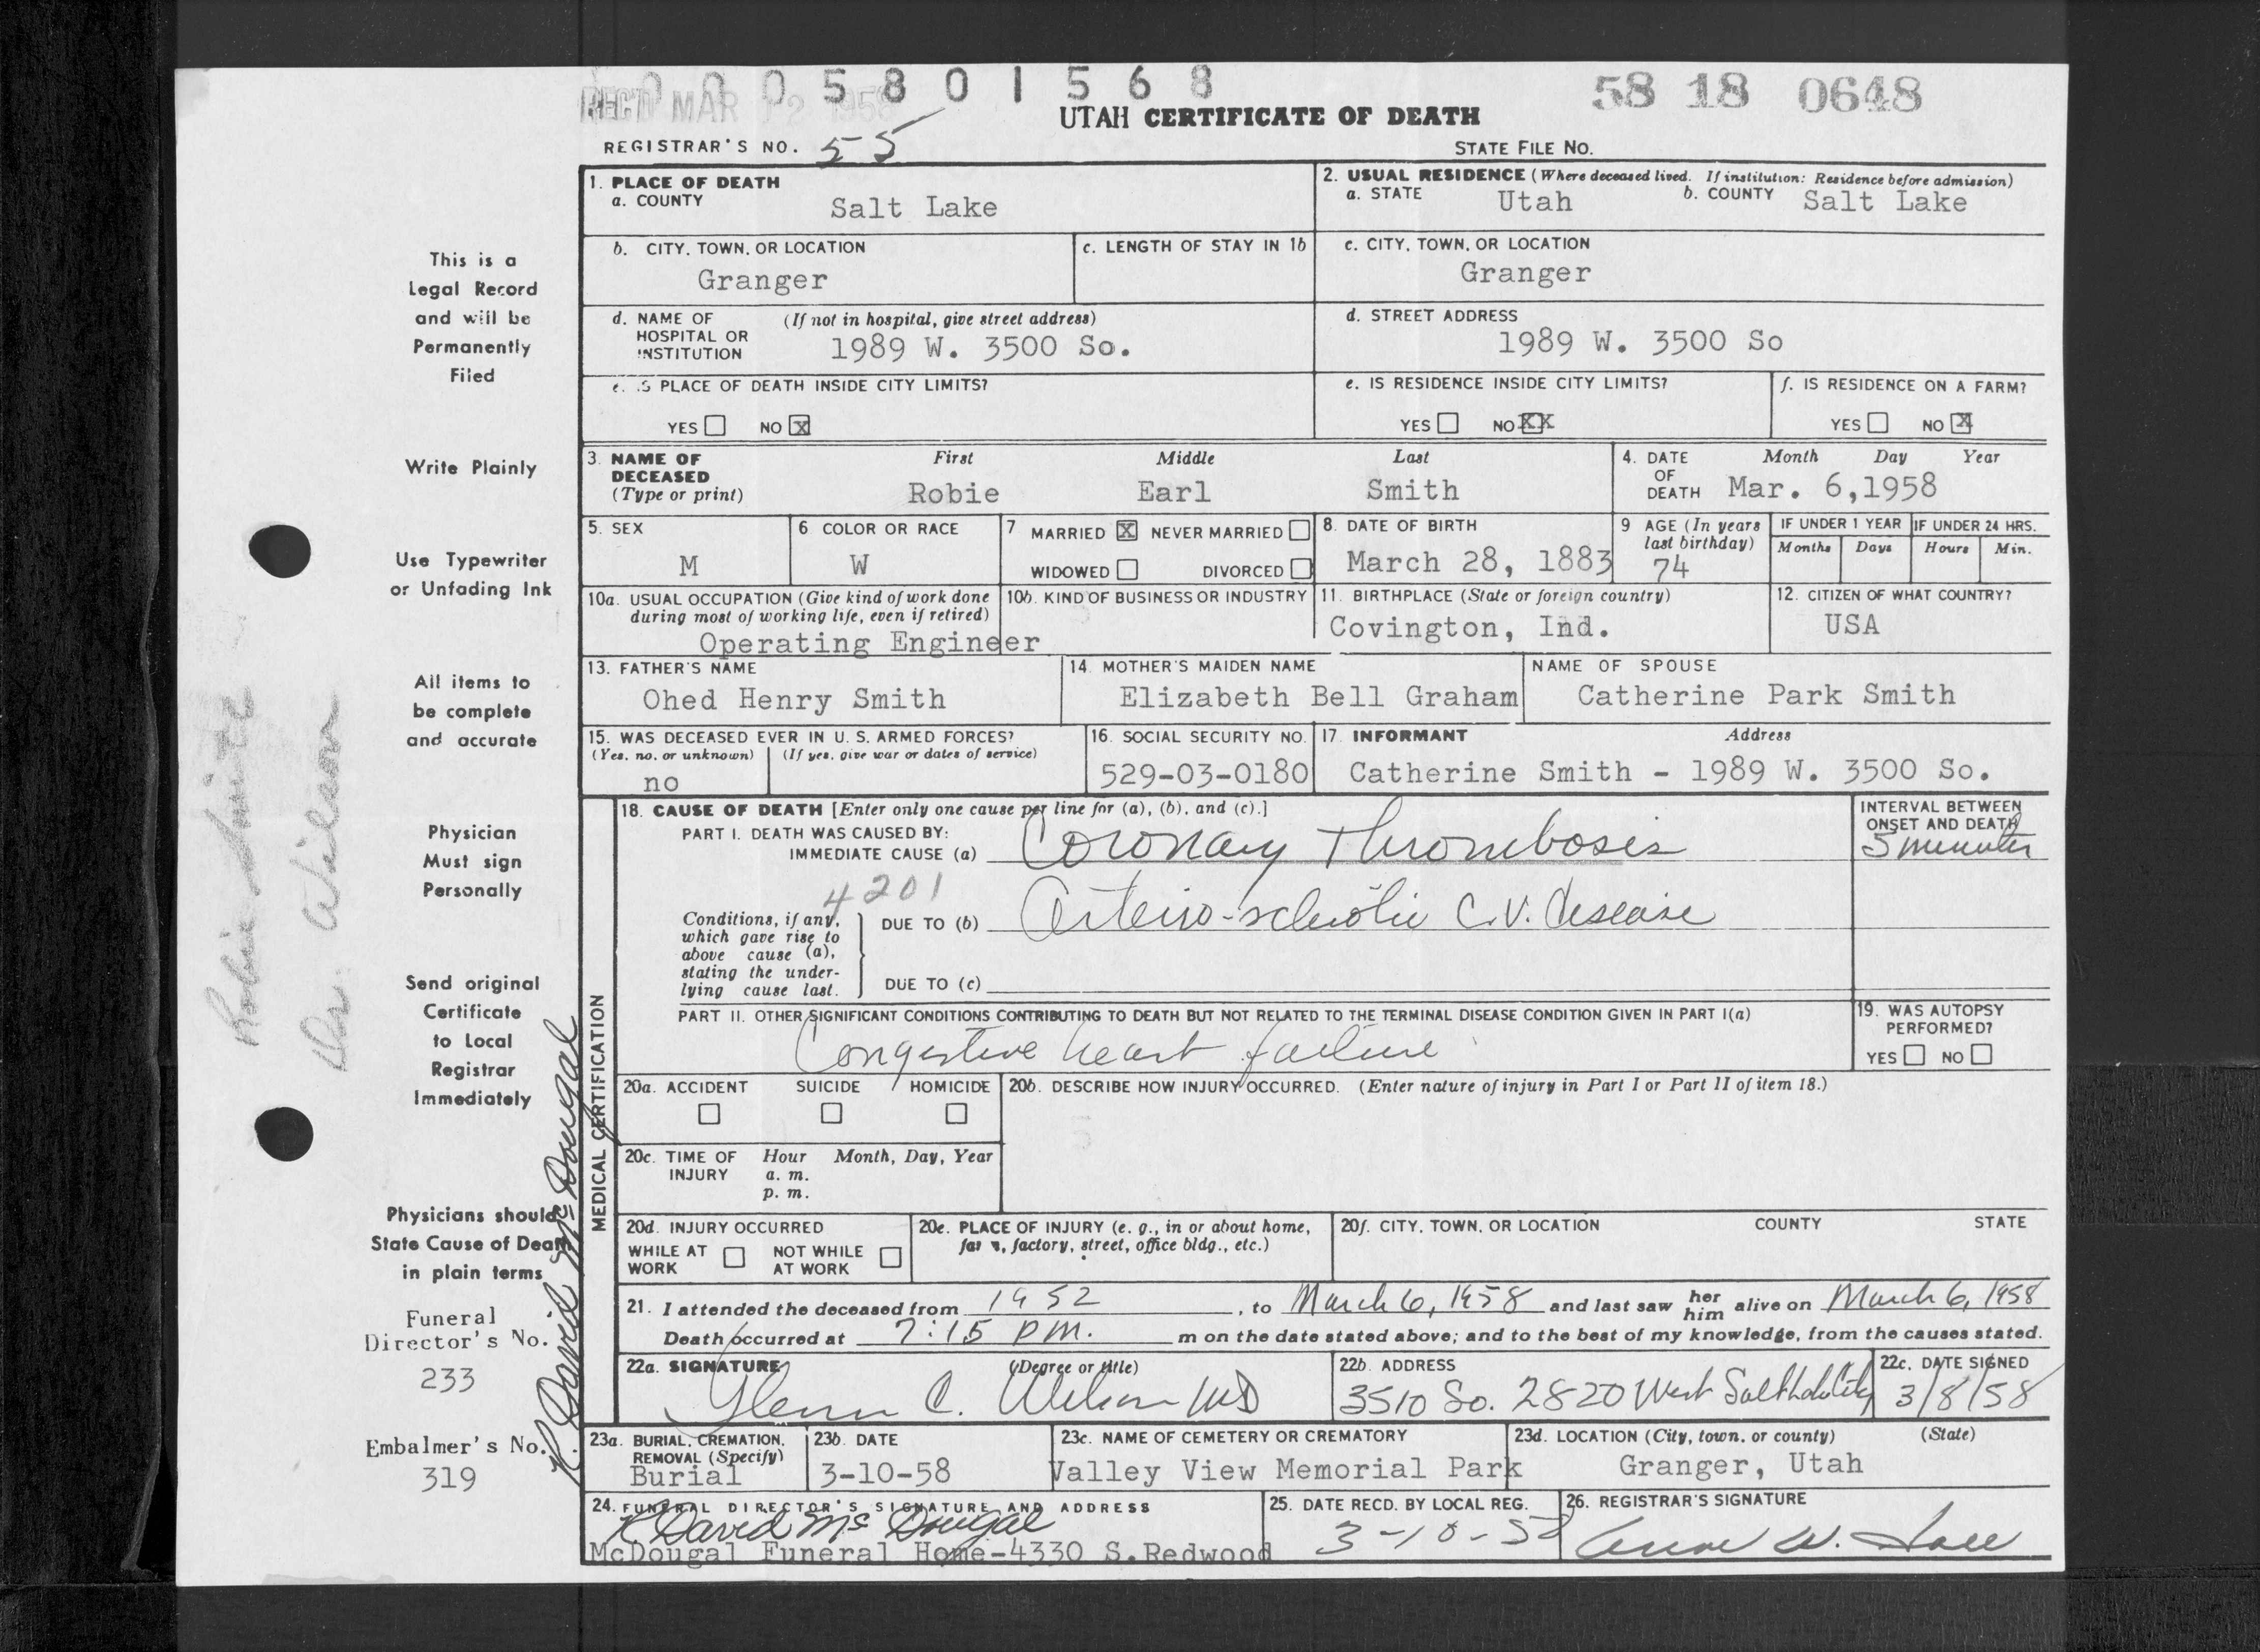 0005801568
REC'D MAR 12 1958
58 18 0648
UTAH CERTIFICATE OF DEATH
REGISTRAR'S NO. 55
STATE FILE NO.
1. PLACE OF DEATH
a. COUNTY
Salt Lake
2. USUAL RESIDENCE (Where deceased lived. If institution: Residence before admission)
a. STATE Utah b. COUNTY Salt Lake
b. CITY, TOWN, OR LOCATION
Granger
c. LENGTH OF STAY IN 1b
c. CITY, TOWN, OR LOCATION
Granger
d. NAME OF HOSPITAL OR INSTITUTION (If not in hospital, give street address)
1989 W. 3500 So.
d. STREET ADDRESS
1989 W. 3500 So
e. IS PLACE OF DEATH INSIDE CITY LIMITS?
YES NO X
e. IS RESIDENCE INSIDE CITY LIMITS?
YES NO XX
f. IS RESIDENCE ON A FARM?
YES NO X
3. NAME OF DECEASED (Type or print)
First Middle Last
Robie Earl Smith
4. DATE OF DEATH Month Day Year
Mar. 6,1958
5. SEX
M
6 COLOR OR RACE
W
7 MARRIED X NEVER MARRIED
WIDOWED DIVORCED
8. DATE OF BIRTH
March 28, 1883
9 AGE (In years last birthday)
74
IF UNDER 1 YEAR
Months Days
IF UNDER 24 HRS.
Hours Min.
10a. USUAL OCCUPATION (Give kind of work done during most of working life, even if retired)
Operating Engineer
10b. KIND OF BUSINESS OR INDUSTRY
11. BIRTHPLACE (State or foreign country)
Covington, Ind.
12. CITIZEN OF WHAT COUNTRY?
USA
13. FATHER'S NAME
Ohed Henry Smith
14. MOTHER'S MAIDEN NAME
Elizabeth Bell Graham
NAME OF SPOUSE
Catherine Park Smith
15. WAS DECEASED EVER IN U. S. ARMED FORCES?
(Yes, no, or unknown) (If yes, give war or dates of service)
no
16. SOCIAL SECURITY NO.
529-03-0180
17. INFORMANT Address
Catherine Smith - 1989 W. 3500 So.
18. CAUSE OF DEATH [Enter only one cause per line for (a), (b), and (c).]
PART I. DEATH WAS CAUSED BY:
IMMEDIATE CAUSE (a) Coronary Thrombosis
INTERVAL BETWEEN ONSET AND DEATH
5 minutes
4201
Conditions, if any, which gave rise to above cause (a), stating the underlying cause last.
DUE TO (b) Arterio-sclerotic C.V. disease
DUE TO (c)
PART II. OTHER SIGNIFICANT CONDITIONS CONTRIBUTING TO DEATH BUT NOT RELATED TO THE TERMINAL DISEASE CONDITION GIVEN IN PART I(a)
Congestive heart failure
19. WAS AUTOPSY PERFORMED?
YES NO
20a. ACCIDENT SUICIDE HOMICIDE
20b. DESCRIBE HOW INJURY OCCURRED. (Enter nature of injury in Part I or Part II of item 18.)
20c. TIME OF INJURY Hour Month, Day, Year
a. m.
p. m.
20d. INJURY OCCURRED
WHILE AT WORK NOT WHILE AT WORK
20e. PLACE OF INJURY (e. g., in or about home, farm, factory, street, office bldg., etc.)
20f. CITY, TOWN, OR LOCATION COUNTY STATE
21. I attended the deceased from 1952, to March 6, 1958 and last saw her him alive on March 6, 1958
Death occurred at 7:15 PM. m on the date stated above; and to the best of my knowledge, from the causes stated.
22a. SIGNATURE (Degree or title)
Glenn C. Wilson MD
22b. ADDRESS
3510 So. 2820 West Salt Lake City
22c. DATE SIGNED
3/8/58
23a. BURIAL, CREMATION, REMOVAL (Specify)
Burial
23b. DATE
3-10-58
23c. NAME OF CEMETERY OR CREMATORY
Valley View Memorial Park
23d. LOCATION (City, town, or county) (State)
Granger, Utah
24. FUNERAL DIRECTOR'S SIGNATURE AND ADDRESS
R David McDougal
McDougal Funeral Home-4330 S.Redwood
25. DATE RECD. BY LOCAL REG.
3-10-58
26. REGISTRAR'S SIGNATURE
MEDICAL CERTIFICATION
This is a
Legal Record
and will be
Permanently
Filed
Write Plainly
Use Typewriter
or Unfading Ink
All items to
be complete
and accurate
Physician
Must sign
Personally
Send original
Certificate
to Local
Registrar
Immediately
Physicians should
State Cause of Death
in plain terms
Funeral
Director's No.
233
Embalmer's No.
319
R David McDougal
Robie Smith
Dr. Wilson